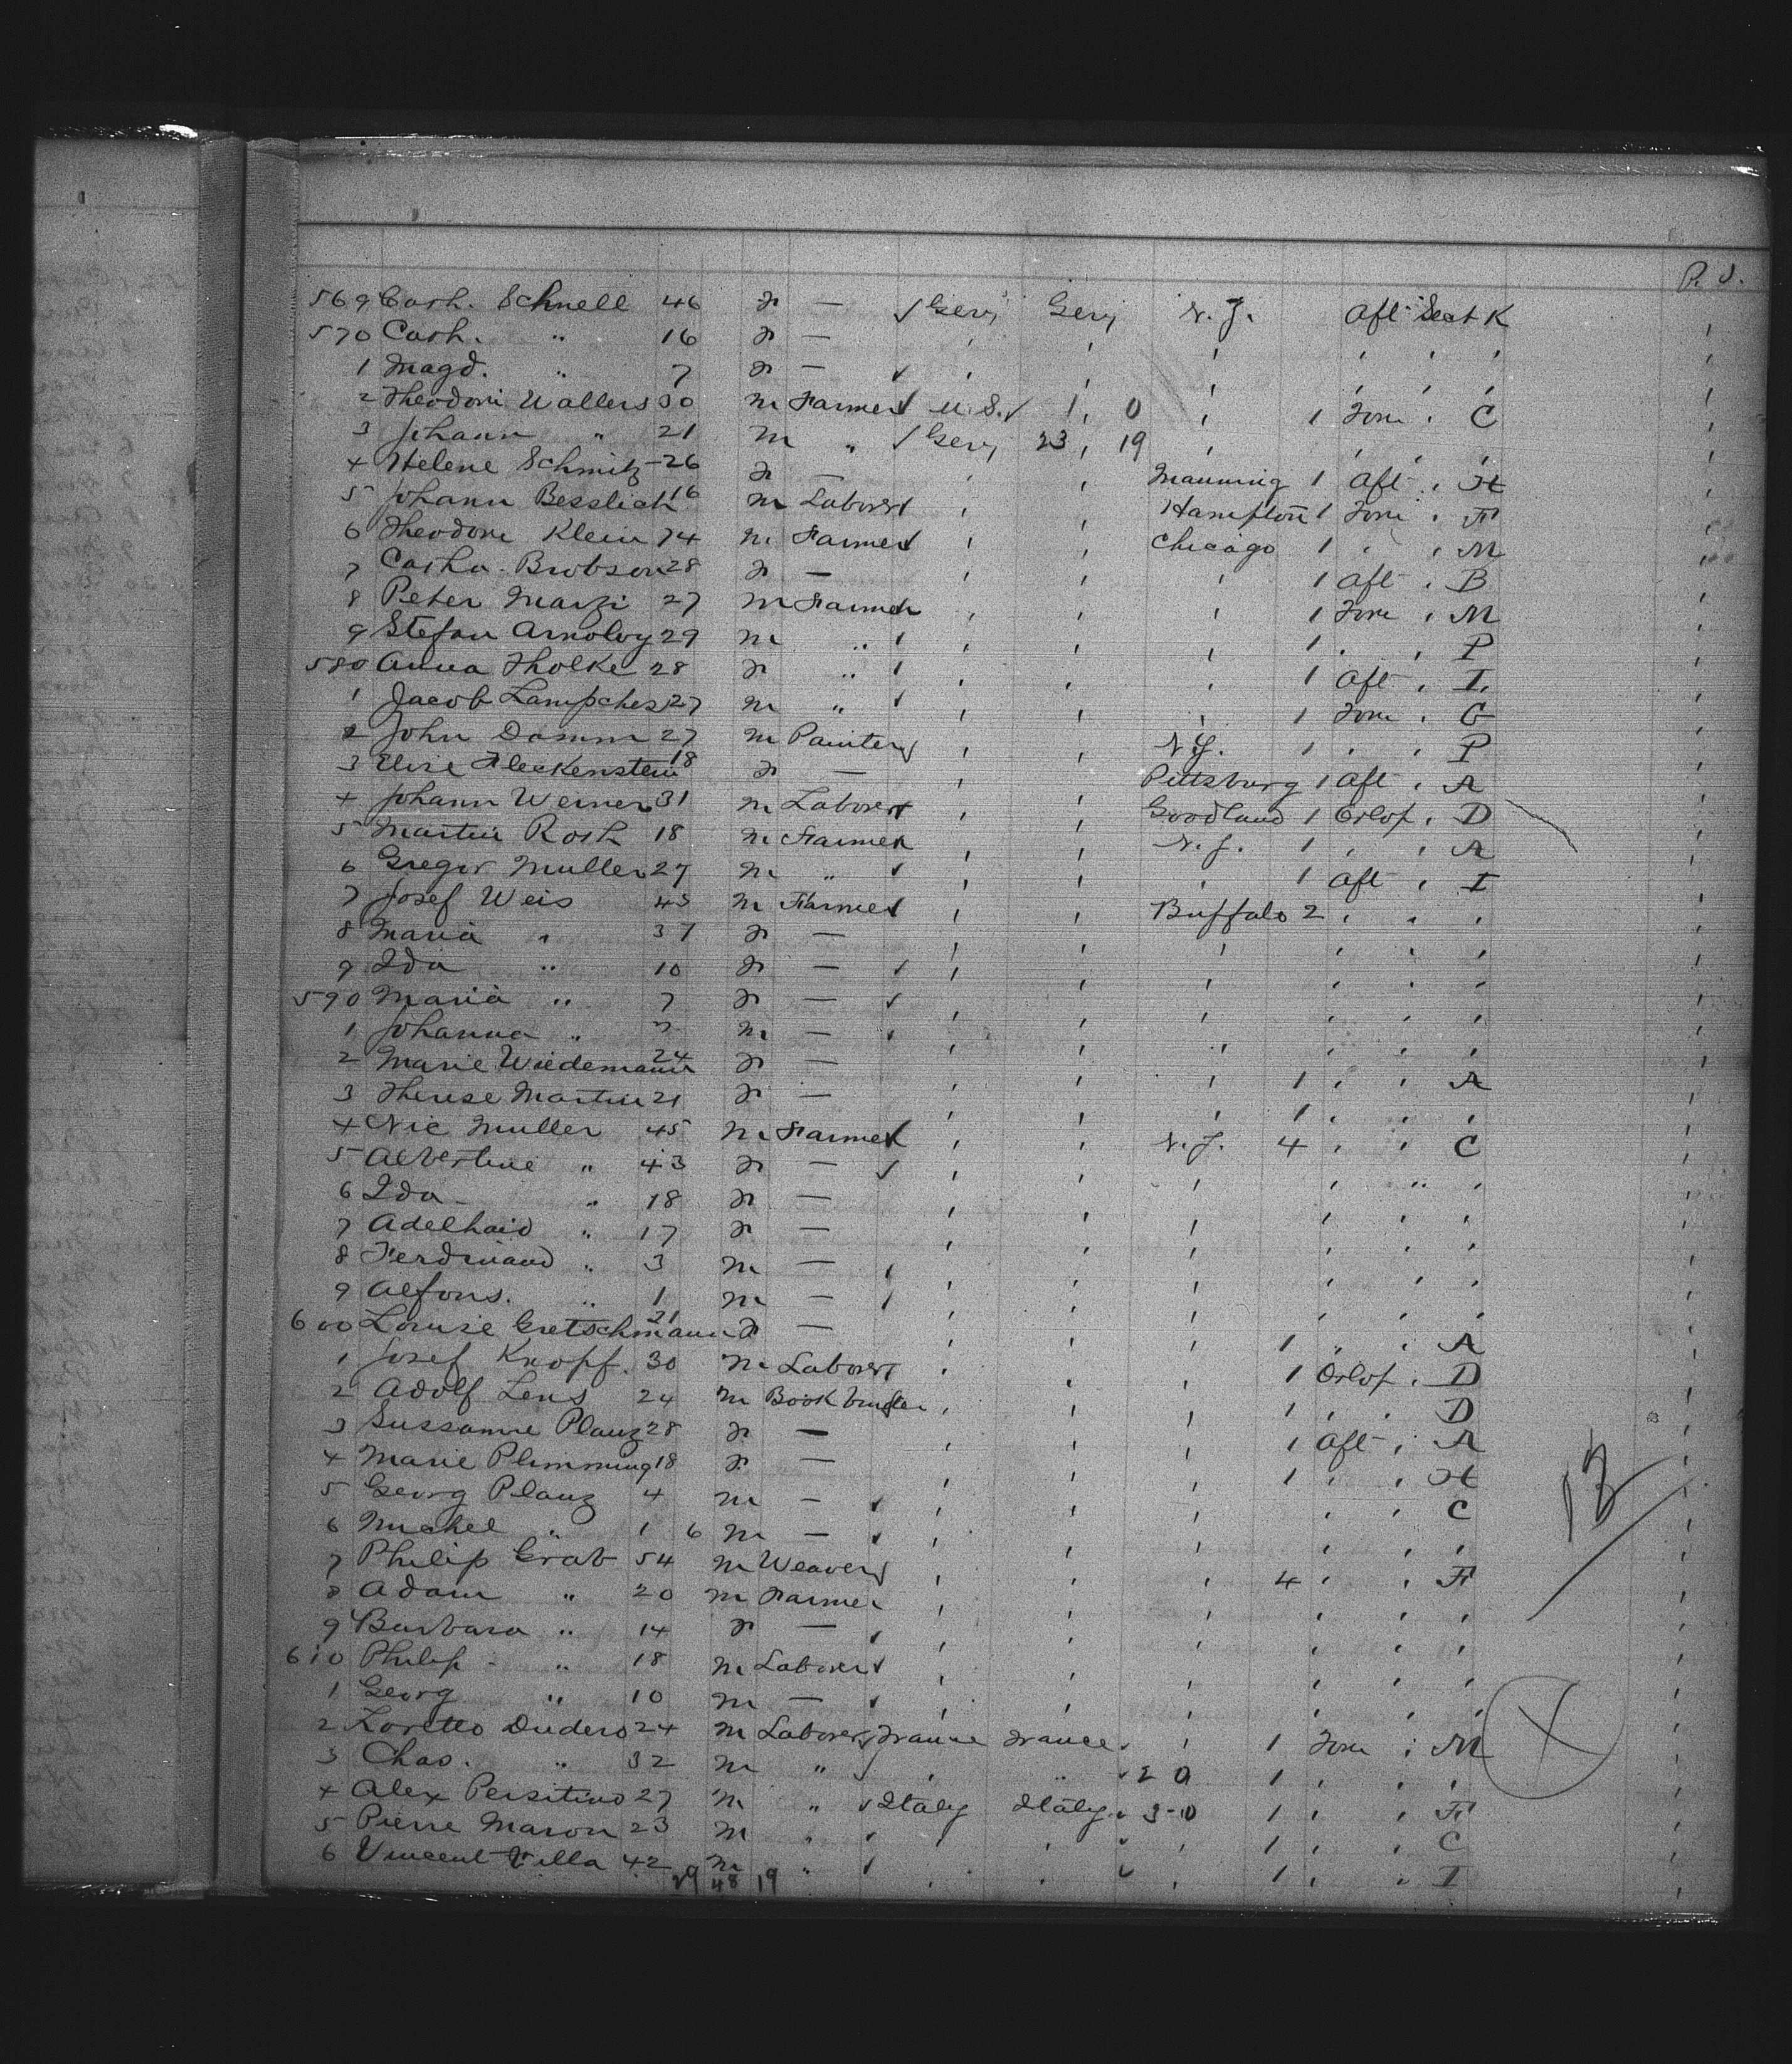 P. S.
569 Cath. Schnell 46 F — ✓ Gery Gery N. Y. Aft Sect K
570 Cath. " 16 F — ' ' ' ' ' '
1 Magd. " 7 F — ✓ ' ' ' ' ' '
2 Theodore Wallers 30 M Farmer ✓ U.S. ✓ 1, 0 ' 1 Fore ' C
3 Johann " 21 M " ✓ Gery 23, 19 ' ' ' '
4 Helene Schmitz 26 F — ' ' Manning 1 Aft ' H
5 Johann Besslich 16 M Laborer ' ' Hampton 1 Fore ' F
6 Theodore Klein 74 M Farmer ' ' Chicago 1 ' ' M
7 Catha. Brobson 28 F — ' ' ' 1 Aft ' B
8 Peter Marzi 27 M Farmer ' ' ' 1 Fore ' M
9 Stefan Arnoldy 29 M " ' ' ' 1 ' ' P
580 Anna Tholke 28 F " ' ' ' 1 Aft ' I
1 Jacob Lampches 27 M " ✓ ' ' ' 1 Fore ' G
2 John Damm 27 M Painter ' ' N.Y. 1 ' ' P
3 Elise Fleckenstein 18 F — ' ' Pittsburg 1 Aft ' A
4 Johann Werner 31 M Laborer ' ' Goodland 1 Orlop ' D
5 Martin Roth 18 M Farmer ' ' N. Y. 1 ' ' A
6 Gregor Muller 27 M " ✓ ' ' ' 1 Aft ' I
7 Josef Weis 43 M Farmer ' ' Buffalo 2 ' ' '
8 Maria " 37 F — ' ' ' ' ' '
9 Ida " 10 F — ✓ ' ' ' ' ' '
590 Maria " 7 F — ✓ ' ' ' ' ' '
1 Johanna " M — ' ' ' ' ' '
2 Marie Wiedemann 24 F — ' ' ' 1 ' ' A
3 Therese Martin 21 F — ' ' ' 1 ' ' '
4 Nic Muller 45 M Farmer ' ' N. Y. 4 ' ' C
5 Albertine " 43 F — ✓ ' ' ' ' " '
6 Ida " 18 F — ' ' ' ' ' '
7 Adelhaid " 17 F — ' ' ' ' ' '
8 Ferdinand " 3 M — ' ' ' ' ' '
9 Alfons. " 1 M — ' ' ' ' ' '
600 Louise Gretschmann 21 F — ' ' ' 1 " ' A
1 Josef Knopf. 30 M Laborer ' ' ' 1 Orlop ' D
2 Adolf Lens 24 M Book binder ' ' ' 1 ' ' D
3 Sussanne Planz 28 F — ' ' ' 1 Aft ' A
4 Marie Plimming 18 F — ' ' ' 1 ' ' H
5 Georg Planz 4 M — ✓ ' ' ' ' ' C
6 Michel " 1 6 M — ✓ ' ' ' ' ' '
7 Philip Grab 54 M Weaver ' ' ' 4 ' ' F
8 Adam " 20 M Farmer ' ' ' ' ' '
9 Barbara " 14 F — ✓ ' ' ' ' ' '
610 Philip " 18 M Laborer ✓ ' ' ' ' ' '
1 Georg " 10 M — ✓ ' ' ' ' ' '
2 Loretto Dudero 24 M Laborer France France ' 1 Fore ' M
3 Chas. " 32 M " ' " ✓ 20 1 ' ' '
4 Alex Persitino 27 M " ✓ Italy Italy 3-10 1 ' ' F
5 Pierre Maron 23 M ' ✓ ' ' ✓ ' 1 ' ' C
6 Vincent Villa 42 M " ✓ ' ' ✓ ' 1 ' ' I
29 48 19
13
X